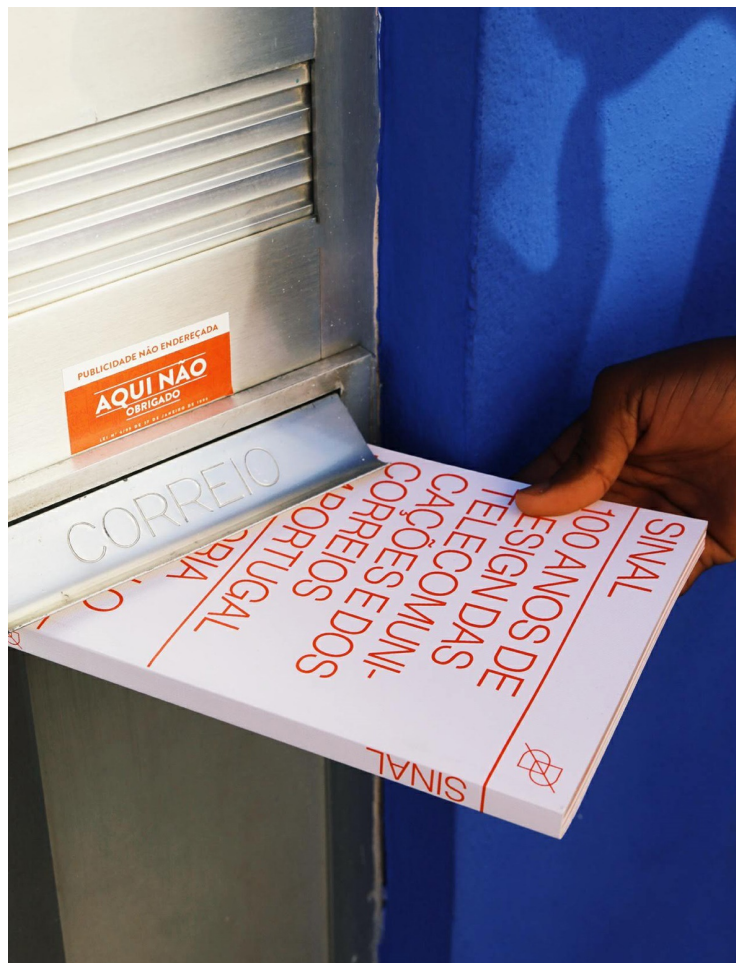 PUBLICIDADE NÃO ENDEREÇADA
AQUI NÃO
OBRIGADO
CORREIO
SINAL
100 ANOS DE
ESIGN DAS
TELECOMUNI-
CAÇÕES E DOS
CORREIOS
PORTUGAL
SINAL